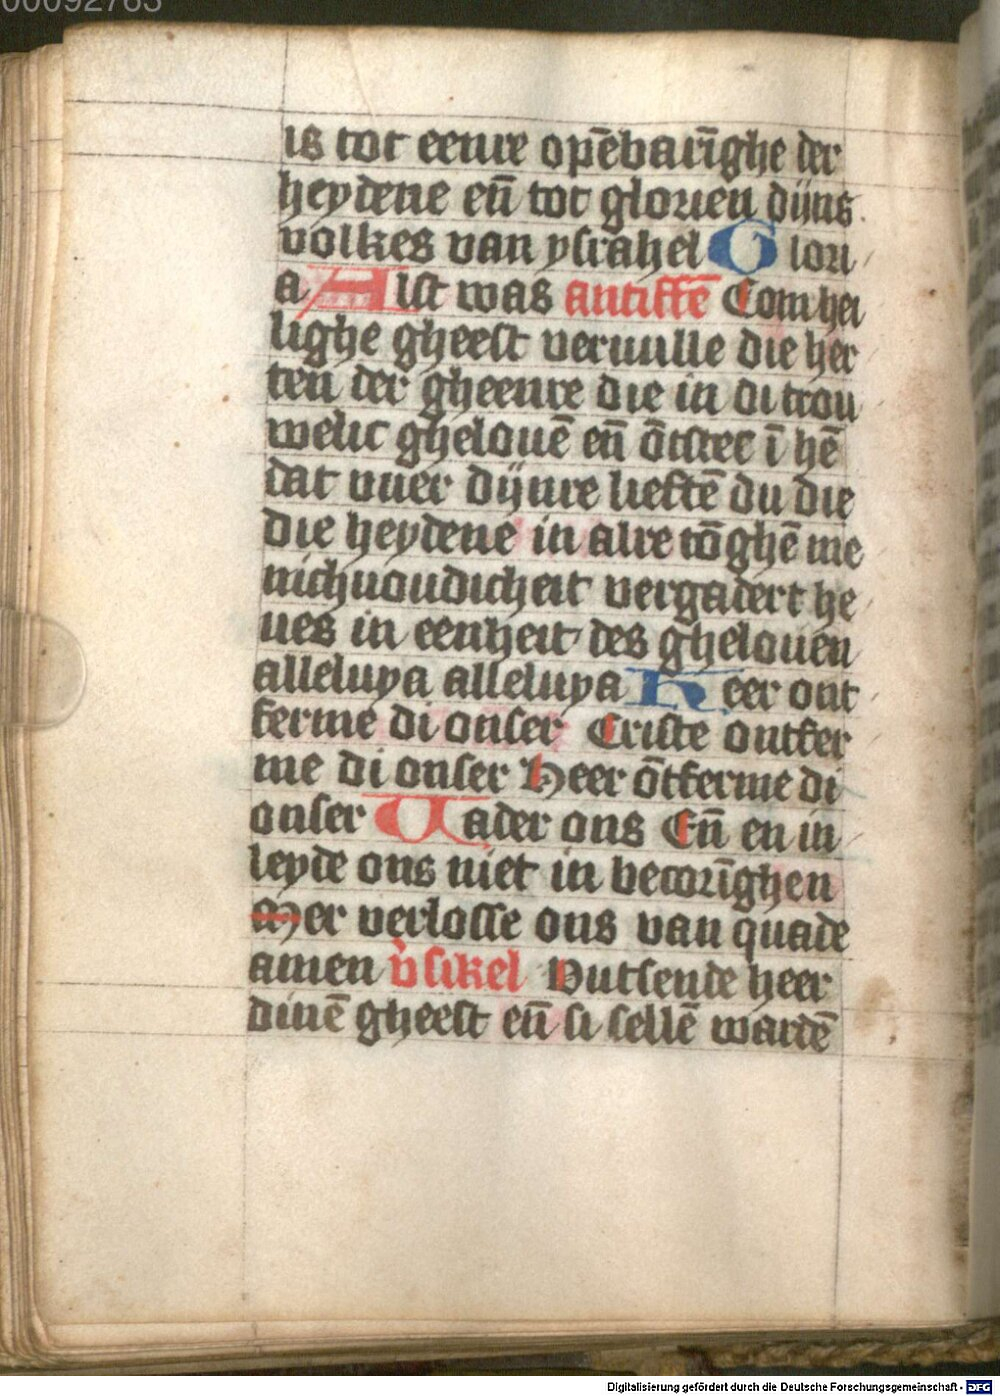 00092763
is tot eenre opēbarīghe der
heydene eñ tot glorien dijns
volkes van ysrahel Glori
a Alst was antiffē Com hei
lighe gheest veruulle die her
ten der gheenre die in di trou
welic ghelouē eñ ōtstec ī hē
dat vuer dijnre lieftē du die
die heydene in alre tōghē me
nichuoudicheit vergadert he
ues in eenheit des ghelouen
alleluya alleluya Heer ont
ferme di onser Criste ontfer
me di onser Heer ōtferme di
onser Vader ons Eñ en in
leyde ons niet in becorīghen
Mer verlosse ons van quade
amen v̓sikel Vutsende heer
dinē gheest eñ si sellē wardē
Digitalisierung gefördert durch die Deutsche Forschungsgemeinschaft - DFG